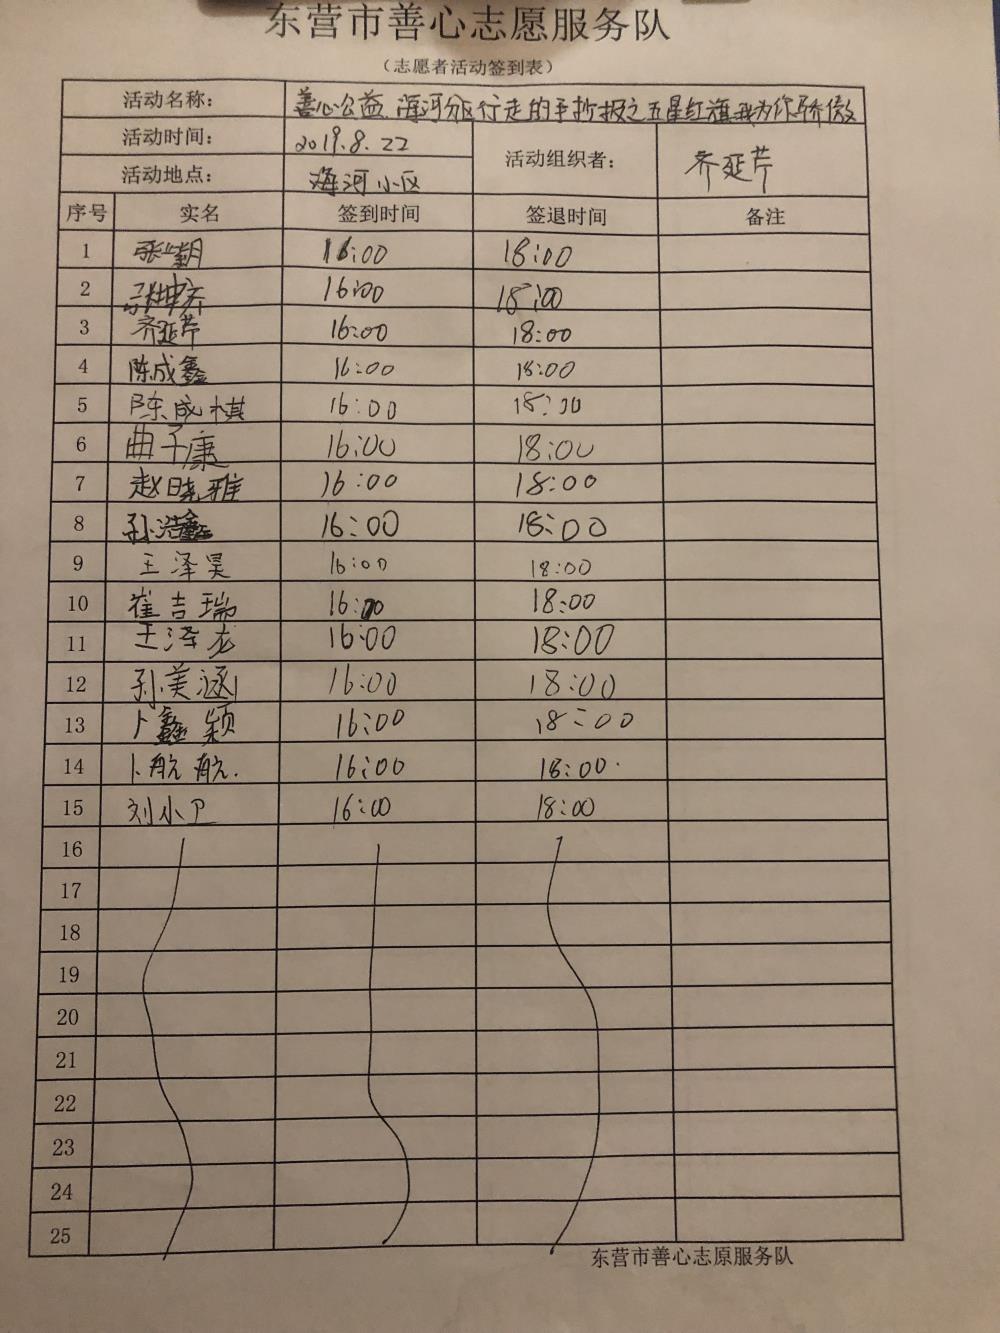 东营市善心志愿服务队
(志愿者活动签到表)
活动名称: 善心公益.海河分区行走的手抄报之五星红旗我为你骄傲
活动时间: 2019.8.22 活动组织者: 齐延芹
活动地点: 海河小区
序号 实名 签到时间 签退时间 备注
1 16:00 18:00
2 16:00 18:00
3 齐延芹 16:00 18:00
4 陈成鑫 16:00 18:00
5 陈成棋 16:00 18:00
6 曲子康 16:00 18:00
7 赵晓雅 16:00 18:00
8 孙浩鑫 16:00 18:00
9 王泽昊 16:00 18:00
10 崔吉瑞 16:00 18:00
11 王泽龙 16:00 18:00
12 孙美涵 16:00 18:00
13 卜鑫颖 16:00 18:00
14 卜航航. 16:00 18:00.
15 刘小卫 16:00 18:00
16
17
18
19
20
21
22
23
24
25
东营市善心志原服务队